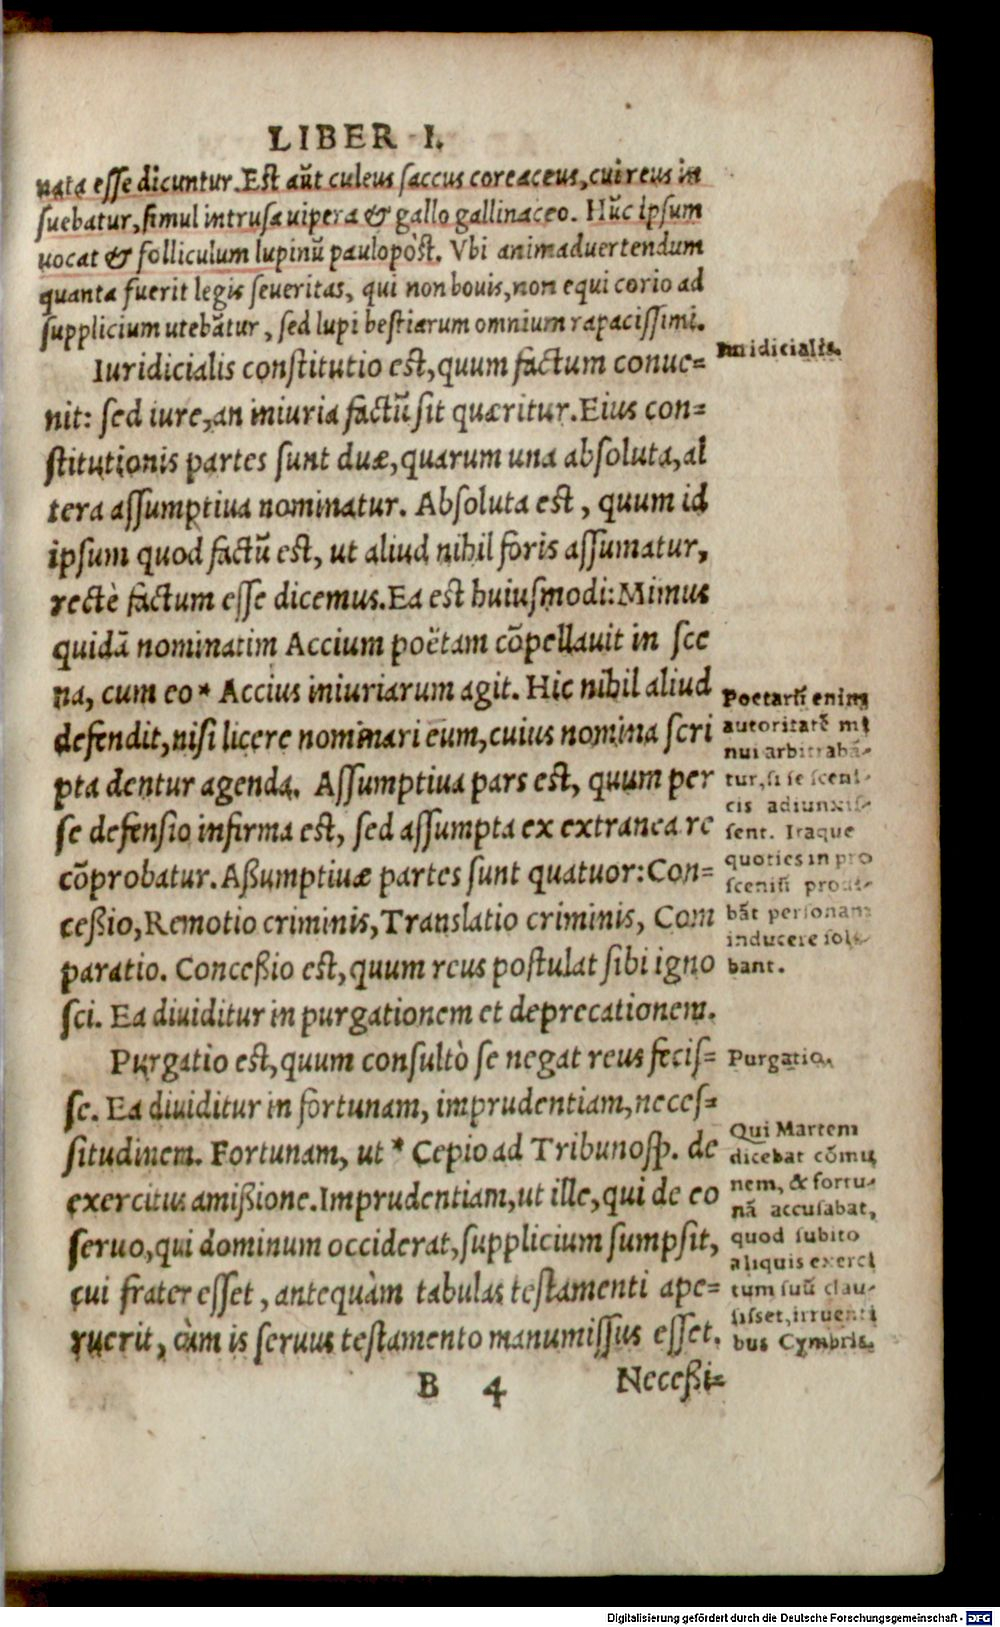 LIBER I.
nata esse dicuntur. Est aūt culeus saccus coreaceus, cui reus in
suebatur, simul intrusa uipera & gallo gallinaceo. Hūc ipsum
uocat & folliculum lupinū paulopòst. Vbi animaduertendum
quanta fuerit legis seueritas, qui non bouis, non equi corio ad
supplicium utebātur, sed lupi bestiarum omnium rapacissimi.
Iuridicialis constitutio est, quum factum conue=
nit: sed iure, an iniuria factū sit quæritur. Eius con=
stitutionis partes sunt duæ, quarum una absoluta, al
tera assumptiua nominatur. Absoluta est, quum id
ipsum quod factū est, ut aliud nihil foris assumatur,
rectè factum esse dicemus. Ea est huiusmodi: Mimus
quidā nominatim Accium poëtam cōpellauit in sce
na, cum eo * Accius iniuriarum agit. Hic nihil aliud
defendit, nisi licere nominari eum, cuius nomina scri
pta dentur agenda. Assumptiua pars est, quum per
se defensio infirma est, sed assumpta ex extranea re
cōprobatur. Aßumptiuæ partes sunt quatuor: Con=
ceßio, Remotio criminis, Translatio criminis, Com
paratio. Conceßio est, quum reus postulat sibi igno
sci. Ea diuiditur in purgationem et deprecationem.
Purgatio est, quum consultò se negat reus fecis=
se. Ea diuiditur in fortunam, imprudentiam, neces=
situdinem. Fortunam, ut * Cepio ad Tribunos p. de
exercitus amißione. Imprudentiam, ut ille, qui de eo
seruo, qui dominum occiderat, supplicium sumpsit,
cui frater esset, antequàm tabulas testamenti ape=
ruerit, cùm is seruus testamento manumissus esset.
B 4 Neceßi=
Iuridicialis.
Poetarū enim
autoritatē mi
nui arbitrabā-
tur, si se sceni-
cis adiunxis-
sent. Itaque
quoties in pro
sceniū prodi-
bāt personam
inducere sole-
bant.
Purgatio.
Qui Martem
dicebat cōmu
nem, & fortu-
nā accusabat,
quod subito
aliquis exerci
tum suū clau-
sisset, irruenti
bus Cymbris.
Digitalisierung gefördert durch die Deutsche Forschungsgemeinschaft - DFG